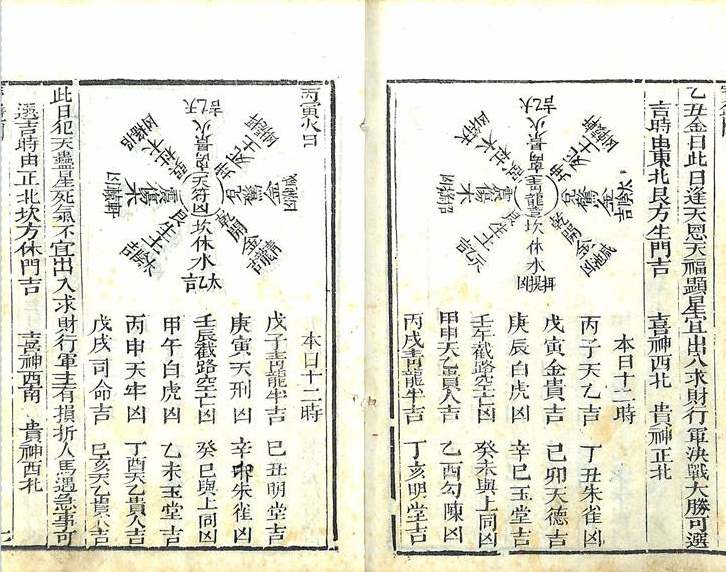 乙丑金日此日逢天恩天福顯星宜出入求財行軍決戰大勝可選
吉時由東北艮方生門吉 喜神西北 貴神正北
離景火
坤死土
兌驚金
乾開金
坎休水
艮生土
震傷木
巽杜木
本日十二時
丙子天乙吉 丁丑朱雀凶
戊寅金貴吉 己卯天德吉
庚辰白虎凶 辛巳玉堂吉
壬午截路空亡凶 癸未與上同凶
甲申天乙貴人吉 乙酉勾陳凶
丙戌靑龍半吉 丁亥明堂吉
丙寅火日
太乙吉
離景火
天符凶
坤死土
兌驚金
乾開金
坎休水
艮生土
震傷木
巽杜木
本日十二時
戊子靑龍半吉 己丑明堂吉
庚寅天刑凶 辛卯朱雀凶
壬辰截路空亡凶 癸巳與上同凶
甲午白虎凶 乙未玉堂吉
丙申天牢凶 丁酉天乙貴人吉
戊戌司命吉 己亥天乙貴人吉
此日犯天蠱星死氣不宜出入求財行軍主有損折人馬遇急事可
選吉時由正北坎方休門吉 喜神西南 貴神西北